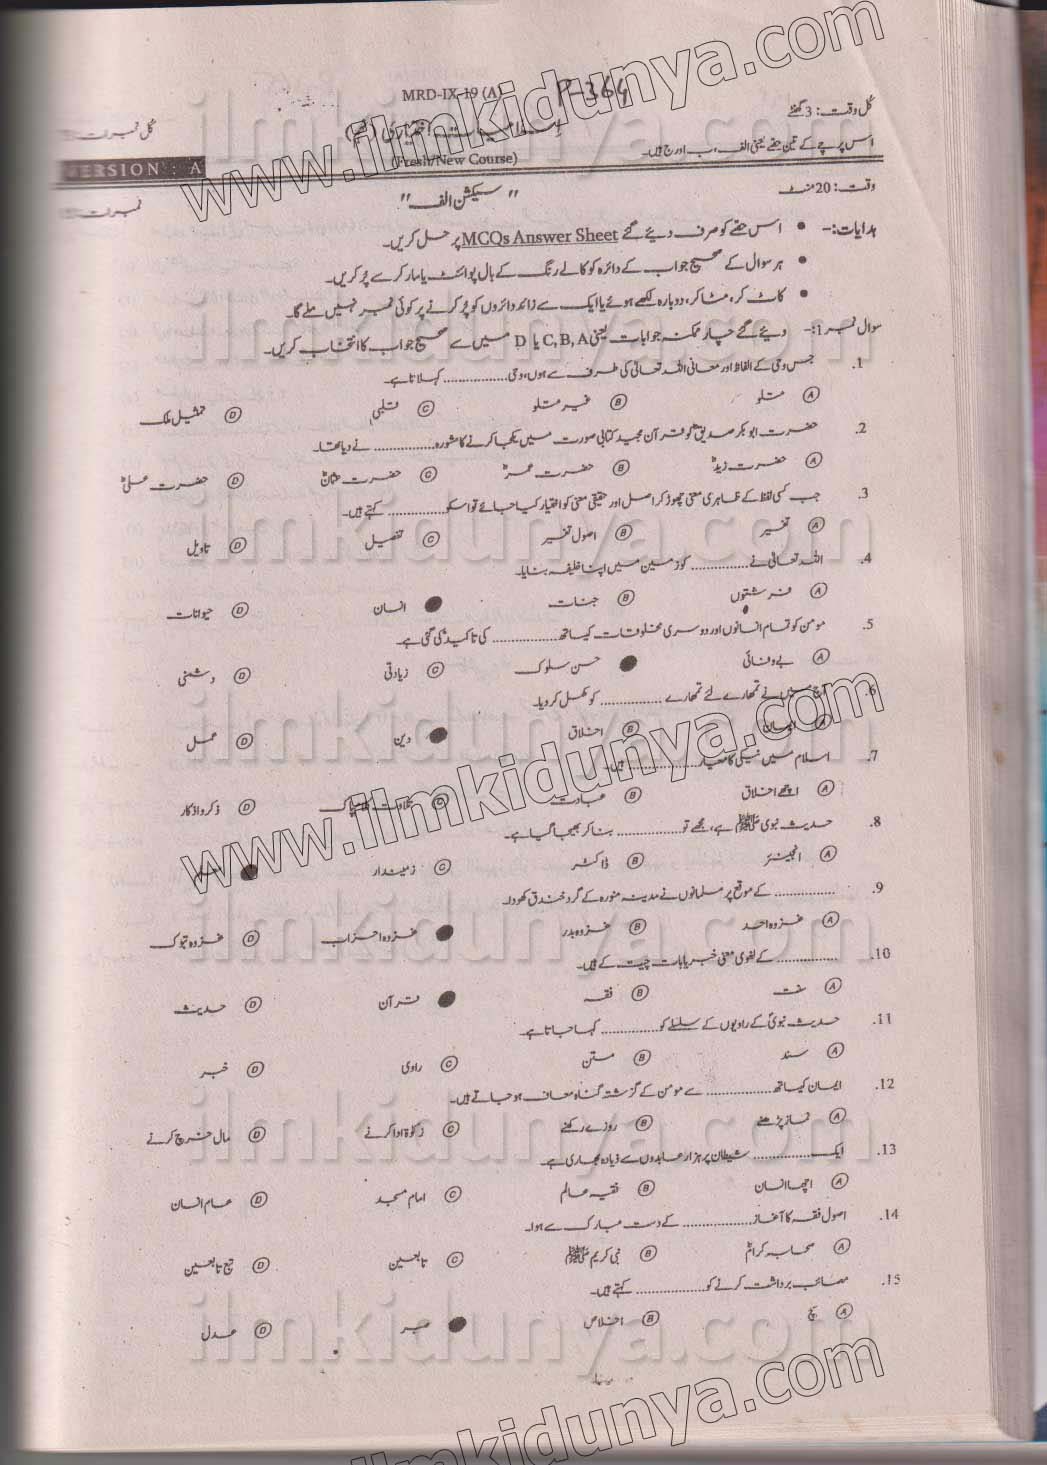 MRD-IX-19 (A)
P-364
کُل وقت: 3 گھنٹے
(Fresh/New Course)
اس پرچے کے تین حصے یعنی الف، ب اور ج ہیں۔
VERSION : A
وقت: 20 منٹ
"سیکشن الف"
ہدایات:- • اس حصے کو صرف دیئے گئے MCQs Answer Sheet پر حل کریں۔
• ہر سوال کے صحیح جواب کے دائرہ کو کالے رنگ کے بال پوائنٹ یا مارکر سے پُر کریں۔
• کاٹ کر، مٹا کر، دوبارہ لکھے ہوئے یا ایک سے زائد دائروں کو پُر کرنے پر کوئی نمبر نہیں ملے گا۔
سوال نمبر 1:- دیئے گئے چار ممکنہ جوابات یعنی C, B, A یا D میں سے صحیح جواب کا انتخاب کریں۔
1. جس وحی کے الفاظ اور معانی اللہ تعالیٰ کی طرف سے ہوں، وحی ............... کہلاتا ہے۔
A متلو B غیر متلو C قلبی D تمثیل ملک
2. حضرت ابوبکر صدیقؓ کو قرآن مجید کتابی صورت میں یکجا کرنے کا مشورہ ............... نے دیا تھا۔
A حضرت زیدؓ B حضرت عمرؓ C حضرت عثمانؓ D حضرت علیؓ
3. جب کسی لفظ کے ظاہری معنی چھوڑ کر اصل اور حقیقی معنی کو اختیار کیا جائے تو اسکو ............... کہتے ہیں۔
A تفسیر B اصول تفسیر C تفصیل D تاویل
4. اللہ تعالیٰ نے ............... کو زمین میں اپنا خلیفہ بنایا۔
A فرشتوں B جنات انسان D حیوانات
5. مومن کو تمام انسانوں اور دوسری مخلوقات کیساتھ ............... کی تاکید کی گئی ہے۔
A بے وفائی حسن سلوک C زیادتی D دشمنی
6. آج میں نے تمھارے لئے تمھارے ............... کو مکمل کر دیا۔
A ایمان B اخلاق دین D عمل
7. اسلام میں نیکی کا معیار ............... ہیں۔
A اچھے اخلاق B عبادت C تلاوت کلام پاک D ذکر و اذکار
8. حدیث نبوی ﷺ ہے، مجھے تو ............... بنا کر بھیجا گیا ہے۔
A انجینئر B ڈاکٹر C زمیندار
9. ............... کے موقع پر مسلمانوں نے مدینہ منورہ کے گرد خندق کھودا۔
A غزوہ احد B غزوہ بدر غزوہ احزاب D غزوہ تبوک
10. ............... کے لغوی معنی خبر یا بات چیت کے ہیں۔
A سنت B فقہ قرآن D حدیث
11. حدیث نبویؐ کے راویوں کے سلسلے کو ............... کہا جاتا ہے۔
A سند B متن C راوی D خبر
12. ایمان کیساتھ ............... سے مومن کے گزشتہ گناہ معاف ہو جاتے ہیں۔
A نماز پڑھنے B روزے رکھنے C زکوٰۃ ادا کرنے D مال خرچ کرنے
13. ایک ............... شیطان پر ہزار عابدوں سے زیادہ بھاری ہے۔
A اچھا انسان B فقیہ عالم C امام مسجد D عام انسان
14. اصول فقہ کا آغاز ............... کے دست مبارک سے ہوا۔
A صحابہ کرامؓ B نبی کریم ﷺ C تابعین D تبع تابعین
15. مصائب برداشت کرنے کو ............... کہتے ہیں۔
A سچ B اخلاص صبر D عدل
www.ilmkidunya.com
ilmkidunya.com
ilmkidunya.com
ilmkidunya.com
www.ilmkidunya.com
ilmkidunya.com
ilmkidunya.com
ilmkidunya.com
www.ilmkidunya.com